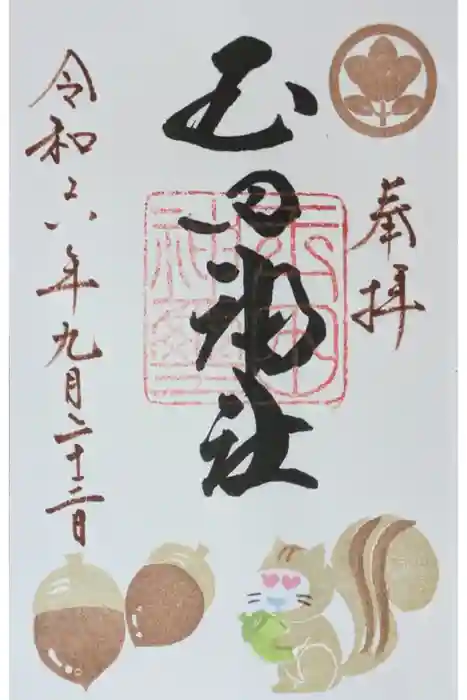 奉拝
玉田神社
令和六年九月二十三日